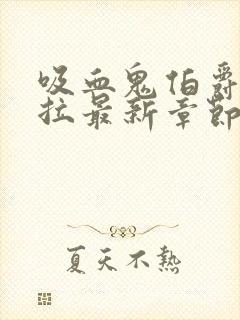 吸血鬼伯爵
拉最新章節
夏天不熱